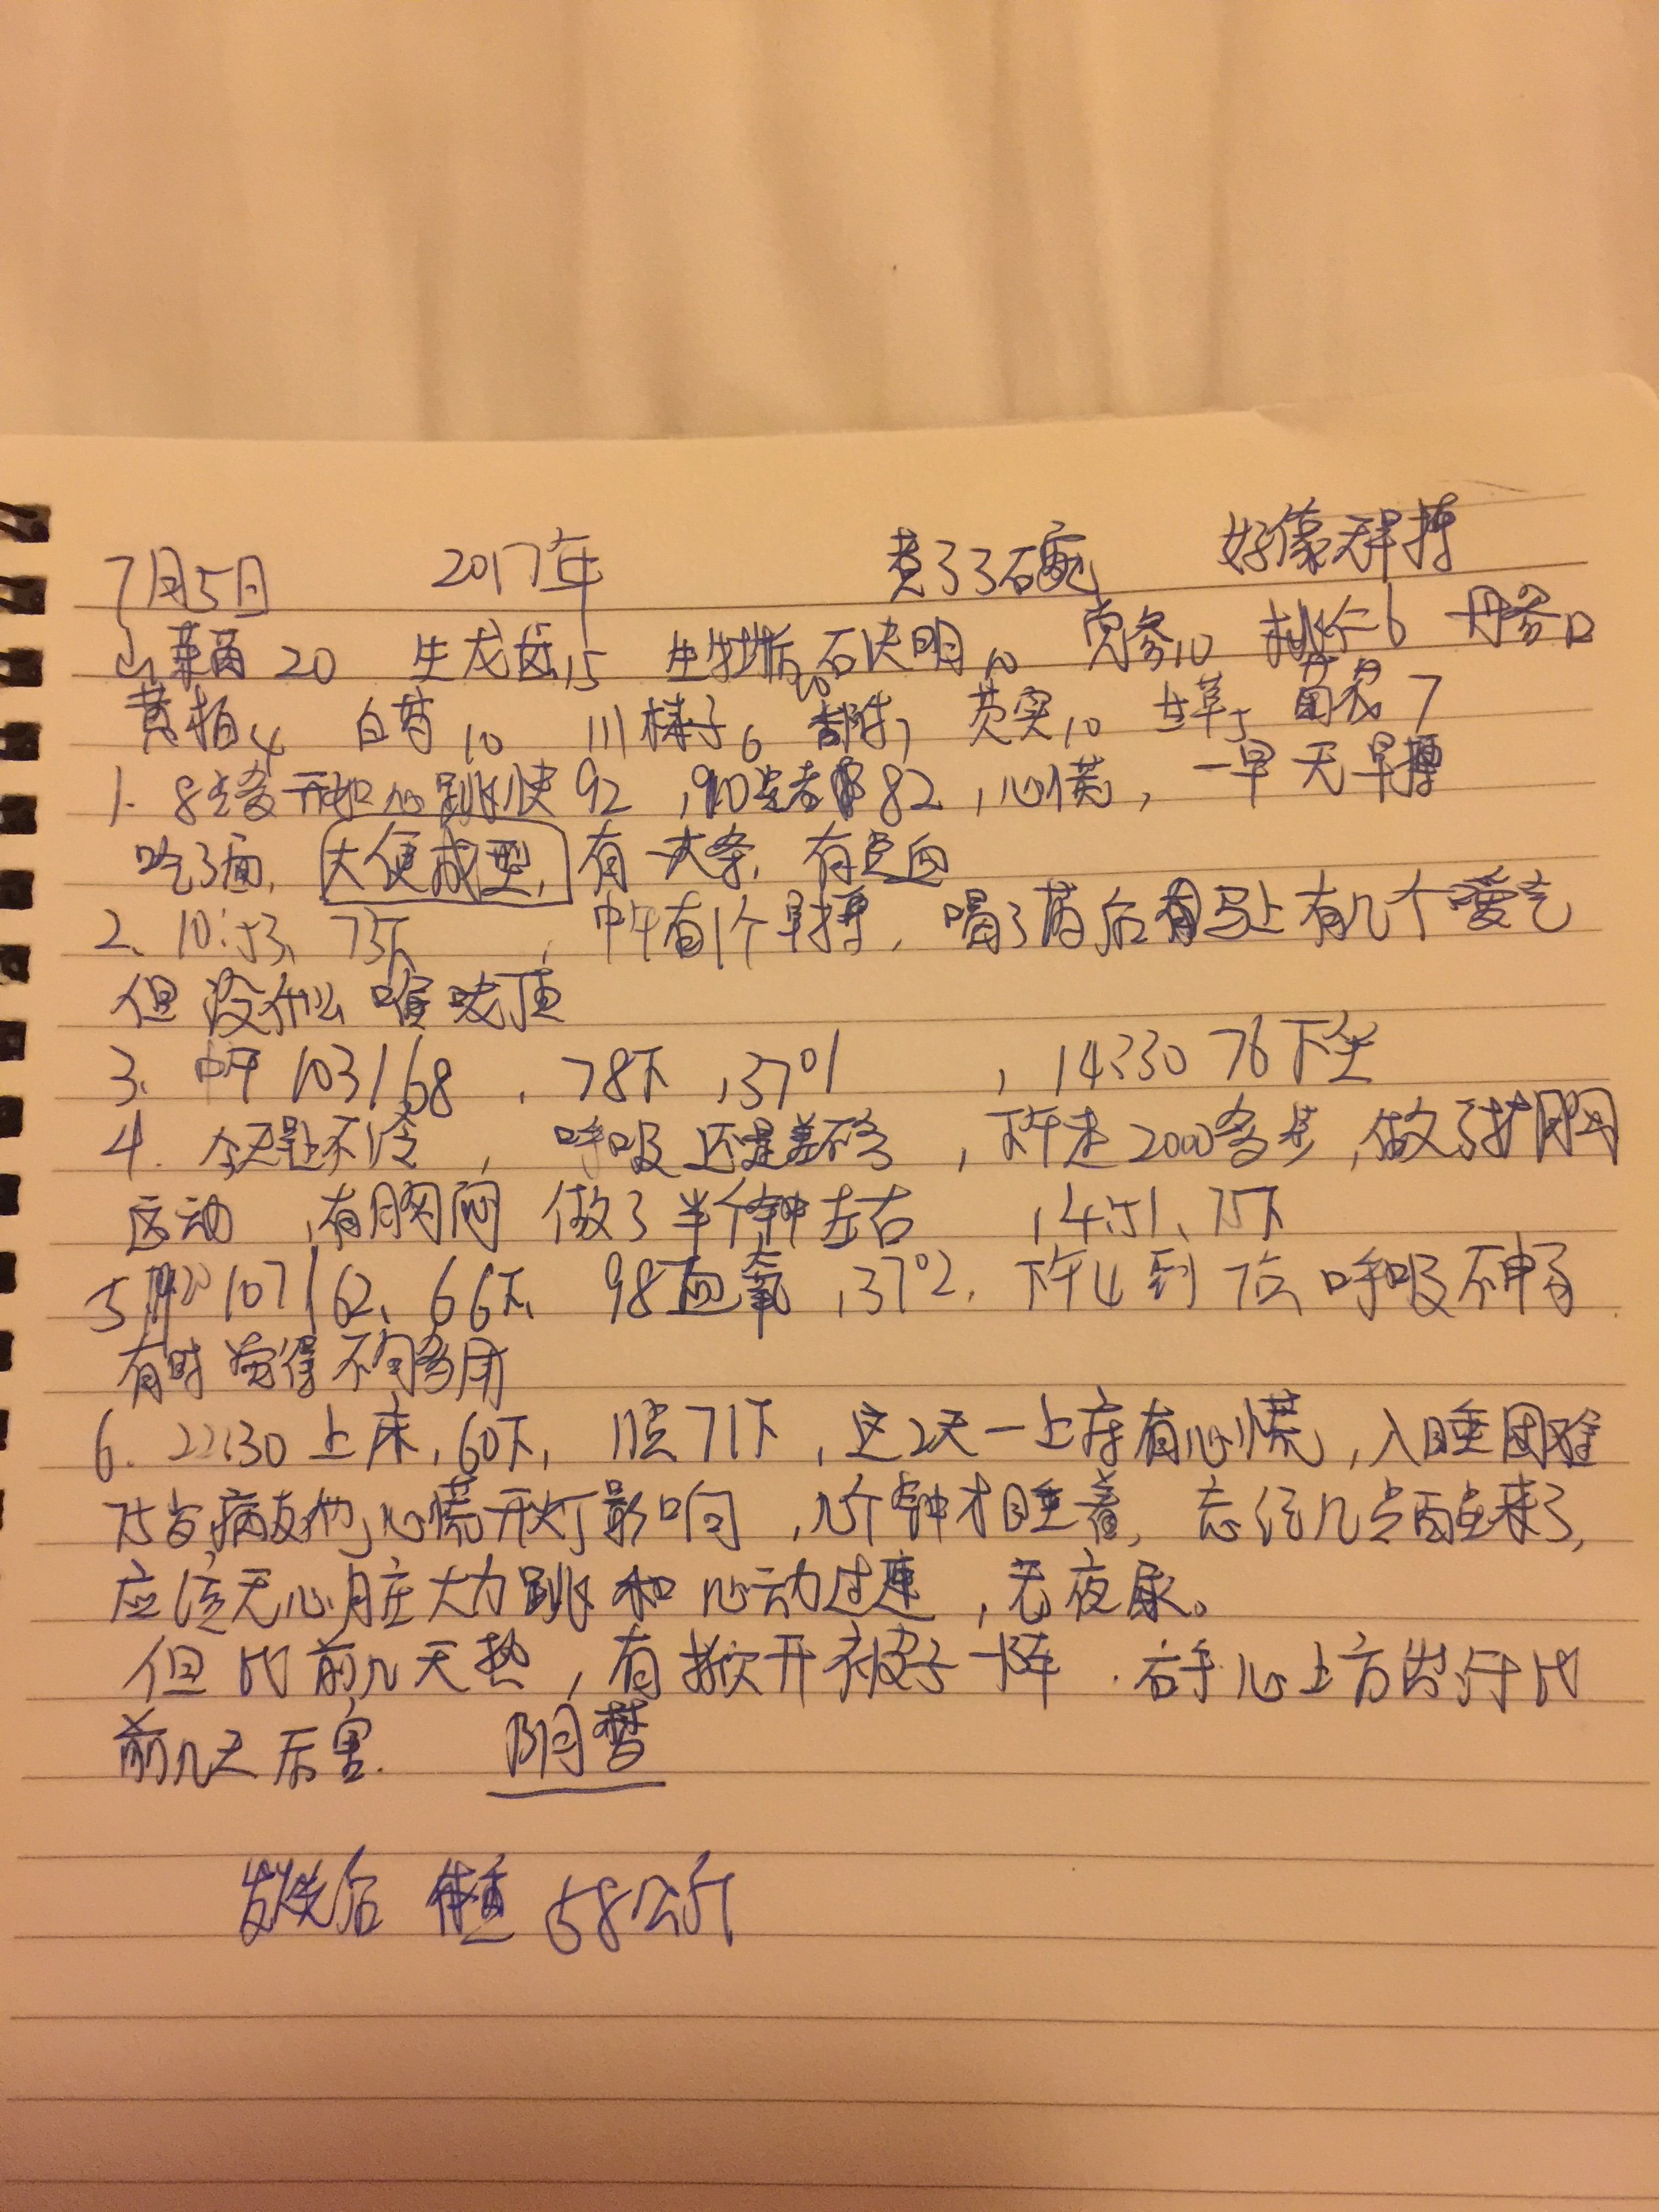 7月5日 2017年 煮了3碗 好像无早搏
山茱萸20 生龙齿15 生牡蛎20 石决明10 党参10 桃仁6 丹参12
黄柏4 白芍10 川楝子6 芡实10 7
1. 8点多开始心跳快92, 82, 心慌, 一早无早搏
吃了面, 大便成型, 有一大条, 有
2、10:53、73下, 中午有1个早搏, 喝了药后马上有几个嗳气
但没什么喉咙顶
3、中午103/68, 78下, 37°1, 14:30 76下坐
4. 今天是不冷, 呼吸还是差不多, 下午走2000多步, 做了扩胸
运动, 有胸闷 做了半个钟左右, 14:51、75下
5 107/62、66下、98血氧, 37°2, 下午4到7点呼吸不申畅
有时觉得不够用
6. 22:30上床, 60下, 11点71下, 这2天一上床有心慌, 入睡困难
75岁病友他心慌开灯影响, 几个钟才睡着, 忘记几点醒来了,
应该无心脏大力跳和心动过速, 无夜尿。
但比前几天热, 有掀开被子一阵. 右手心上方出汗比
前几天厉害. 阴梦
发烧后 体重58公斤